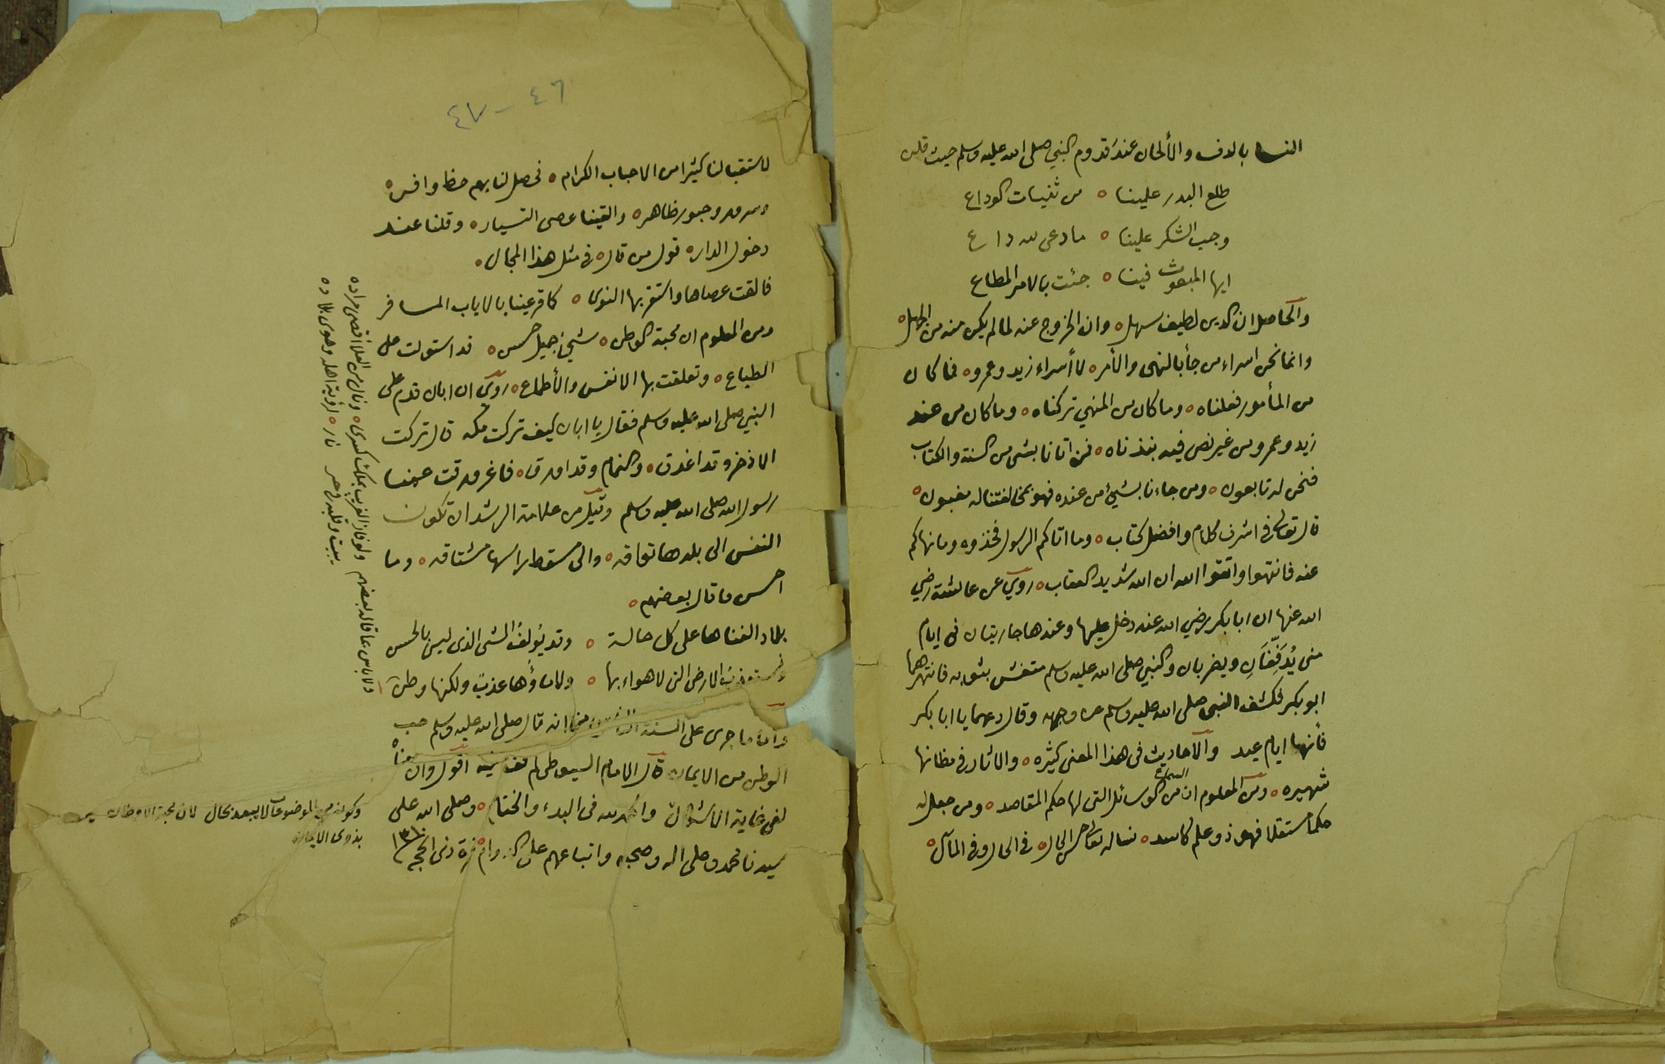 النسا بالدف والألحان عند قدوم النبي صلى الله عليه وسلم حيث قلن
طلع البدر علينا ٥ من ثنيات الوداع
وجب الشكر علينا ٥ ما دعى لله داع
ايها المبعوث فينا ٥ جئت بالامر المطاع
والحاصل ان الدين لطيف سهل ٥ وان الخروج عنه لما لم يكن منه من الجهل ٥
وانما نحن اسراء من جأ بالنهى والأمر ٥ لا أسراء زيد وعمرو ٥ فما كان
من المأمور فعلناه ٥ وما كان من المنهي تركناه ٥ وما كان من عند
زيد وعمرو من غير نص فيه نبذناه ٥ فمن اتانا بشى من السنة والكتاب
فنحن له تابعون ٥ ومن جاءنا بشئ من عنده فهو بمخالفتنا له مغبون ٥
قال تعالى في اشرف كلام وافضل كتاب ٥ وما اتاكم الرسول فخذوه وما نهاكم
عنه فانتهوا واتقوا الله ان الله شديد العقاب ٥ روي عن عائشة رضي
الله عنها ان ابا بكر رضي الله عنه دخل عليها وعندها جاريتان في ايام
منى يُدَفِّفَانِ ويضربان والنبي صلى الله عليه وسلم متغش بثوبه فانتهرهما
ابو بكر فكشف النبي صلى الله عليه وسلم عن وجهه وقال دعهما يا ابا بكر
فانها ايام عيد والاحاديث في هذا المعنى كثيره ٥ والاثار في مظانها
شهيره ٥ ومن المعلوم ان السماع من الوسائل التي لها حكم المقاصد ٥ ومن جعل له
حكما مستقلا فهو ذو علم كاسد ٥ نساله تعالى حسن الحال ٥ في الحال وفي المآل ٥
٤٦ - ٤٧
لاستقبالنا كثيرا من الاحباب الكرام ٥ فحصل لنا بهم حظ وافر ٥
وسرور وحبور ظاهر ٥ والقينا عصى التسيار ٥ وقلنا عند
دخول الدار ٥ قول من قال ٥ في مثل هذا المجال ٥
فالقت عصاها واستقر بها النوى ٥ كما قر عينا بالاياب المسافر
ومن المعلوم ان محبة الوطن ٥ شيئ جميل حسن ٥ قد استولت على
الطباع ٥ وتعلقت بها الانفس والأطماع ٥ روي ان ابان قدم على
النبي صلى الله عليه وسلم فقال يا ابان كيف تركت مكه قال تركت
الاذخر وقد اغدق ٥ والثمام وقد اورق ٥ فاغرورقت عينا
رسول الله صلى الله عليه وسلم وقيل من علامة الرشد ان تكون
النفس الى بلدها تواقه ٥ والى مسقط راسها مشتاقه ٥ وما
احسن ما قال بعضهم ٥
بلاد الفناها على كل حالة ٥ وقد يُؤلف الشى الذى ليس بالحسن
وتستعذب الارض التي لا هواء بها ٥ ولا ماؤها عذب ولكنها وطن
واما ما جرى على السنة انه قال صلى الله عليه وسلم حب
الوطن من الايمان قال الامام السيوطي لم نقف عليه اقول وان معناه
لفي غاية والحمد لله في البدء والختام ٥ وصلى الله على
سيدنا محمد وعلى اله وصحبه واتباعهم على الدوام غرة ذى الحجه
ولا باس بما قاله بعضهم ولو فاز الغريب بملك كسرى ٥ ونال من العلا اقصى مراده
يبيت وقلبه فى حر نار ٥ لرؤية اهله وهوى بلاده
وكونه من الموضوعات لا يبعد بحال لان محبة الاوطان
بذوى الايمان